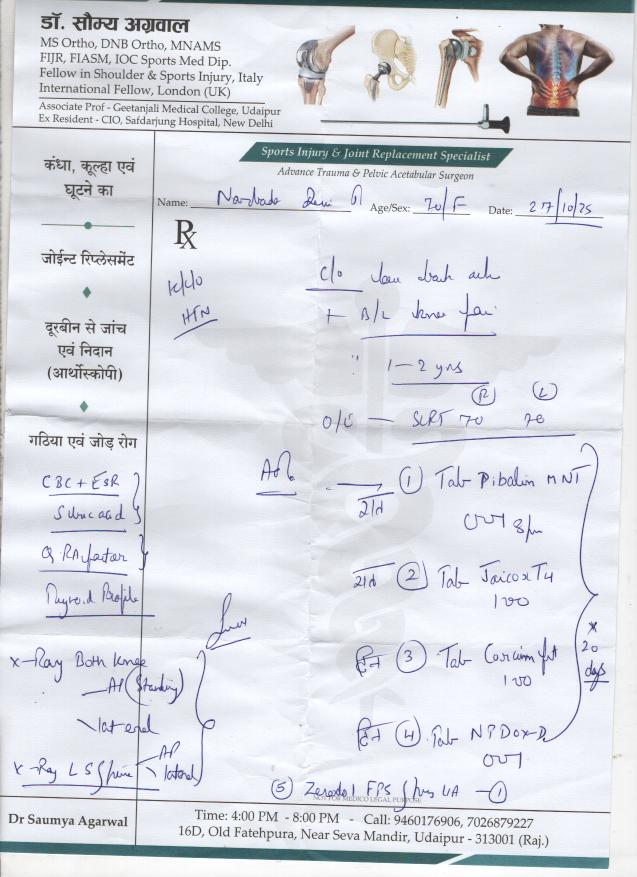 डॉ. सौम्य अग्रवाल
MS Ortho, DNB Ortho, MNAMS
FIJR, FIASM, IOC Sports Med Dip.
Fellow in Shoulder & Sports Injury, Italy
International Fellow, London (UK)
Associate Prof - Geetanjali Medical College, Udaipur
Ex Resident - CIO, Safdarjung Hospital, New Delhi
Sports Injury & Joint Replacement Specialist
Advance Trauma & Pelvic Acetabular Surgeon
Name: Age/Sex: 70/F Date: 27/10/25
Rx
कंधा, कूल्हा एवं
घुटने का
जोईन्ट रिप्लेसमेंट
दूरबीन से जांच
एवं निदान
(आर्थोस्कोपी)
गठिया एवं जोड़ रोग
K/c/o
HTN
C/o
+ B/L knee pain
1-2 yrs
R L
O/E - SLRT 70 70
CBC + ESR
S. uric acid
Q. RA factor
Thyroid Profile
X-Ray Both Knee
AP (Standing)
lateral
X-Ray LS Spine AP
lateral
Adv.
1 Tab Pibalin MNT
001 8pm
2 Tab T4
100
3 Tab
100
4 Tab D
001
x 20 days
5 NOT FOR MEDICO LEGAL PURPOSE
Dr Saumya Agarwal
Time: 4:00 PM - 8:00 PM - Call: 9460176906, 7026879227
16D, Old Fatehpura, Near Seva Mandir, Udaipur - 313001 (Raj.)